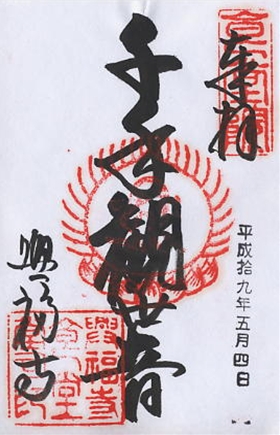 奉拝
平成拾九年五月四日
千手觀世音
興福寺
興福寺
食堂